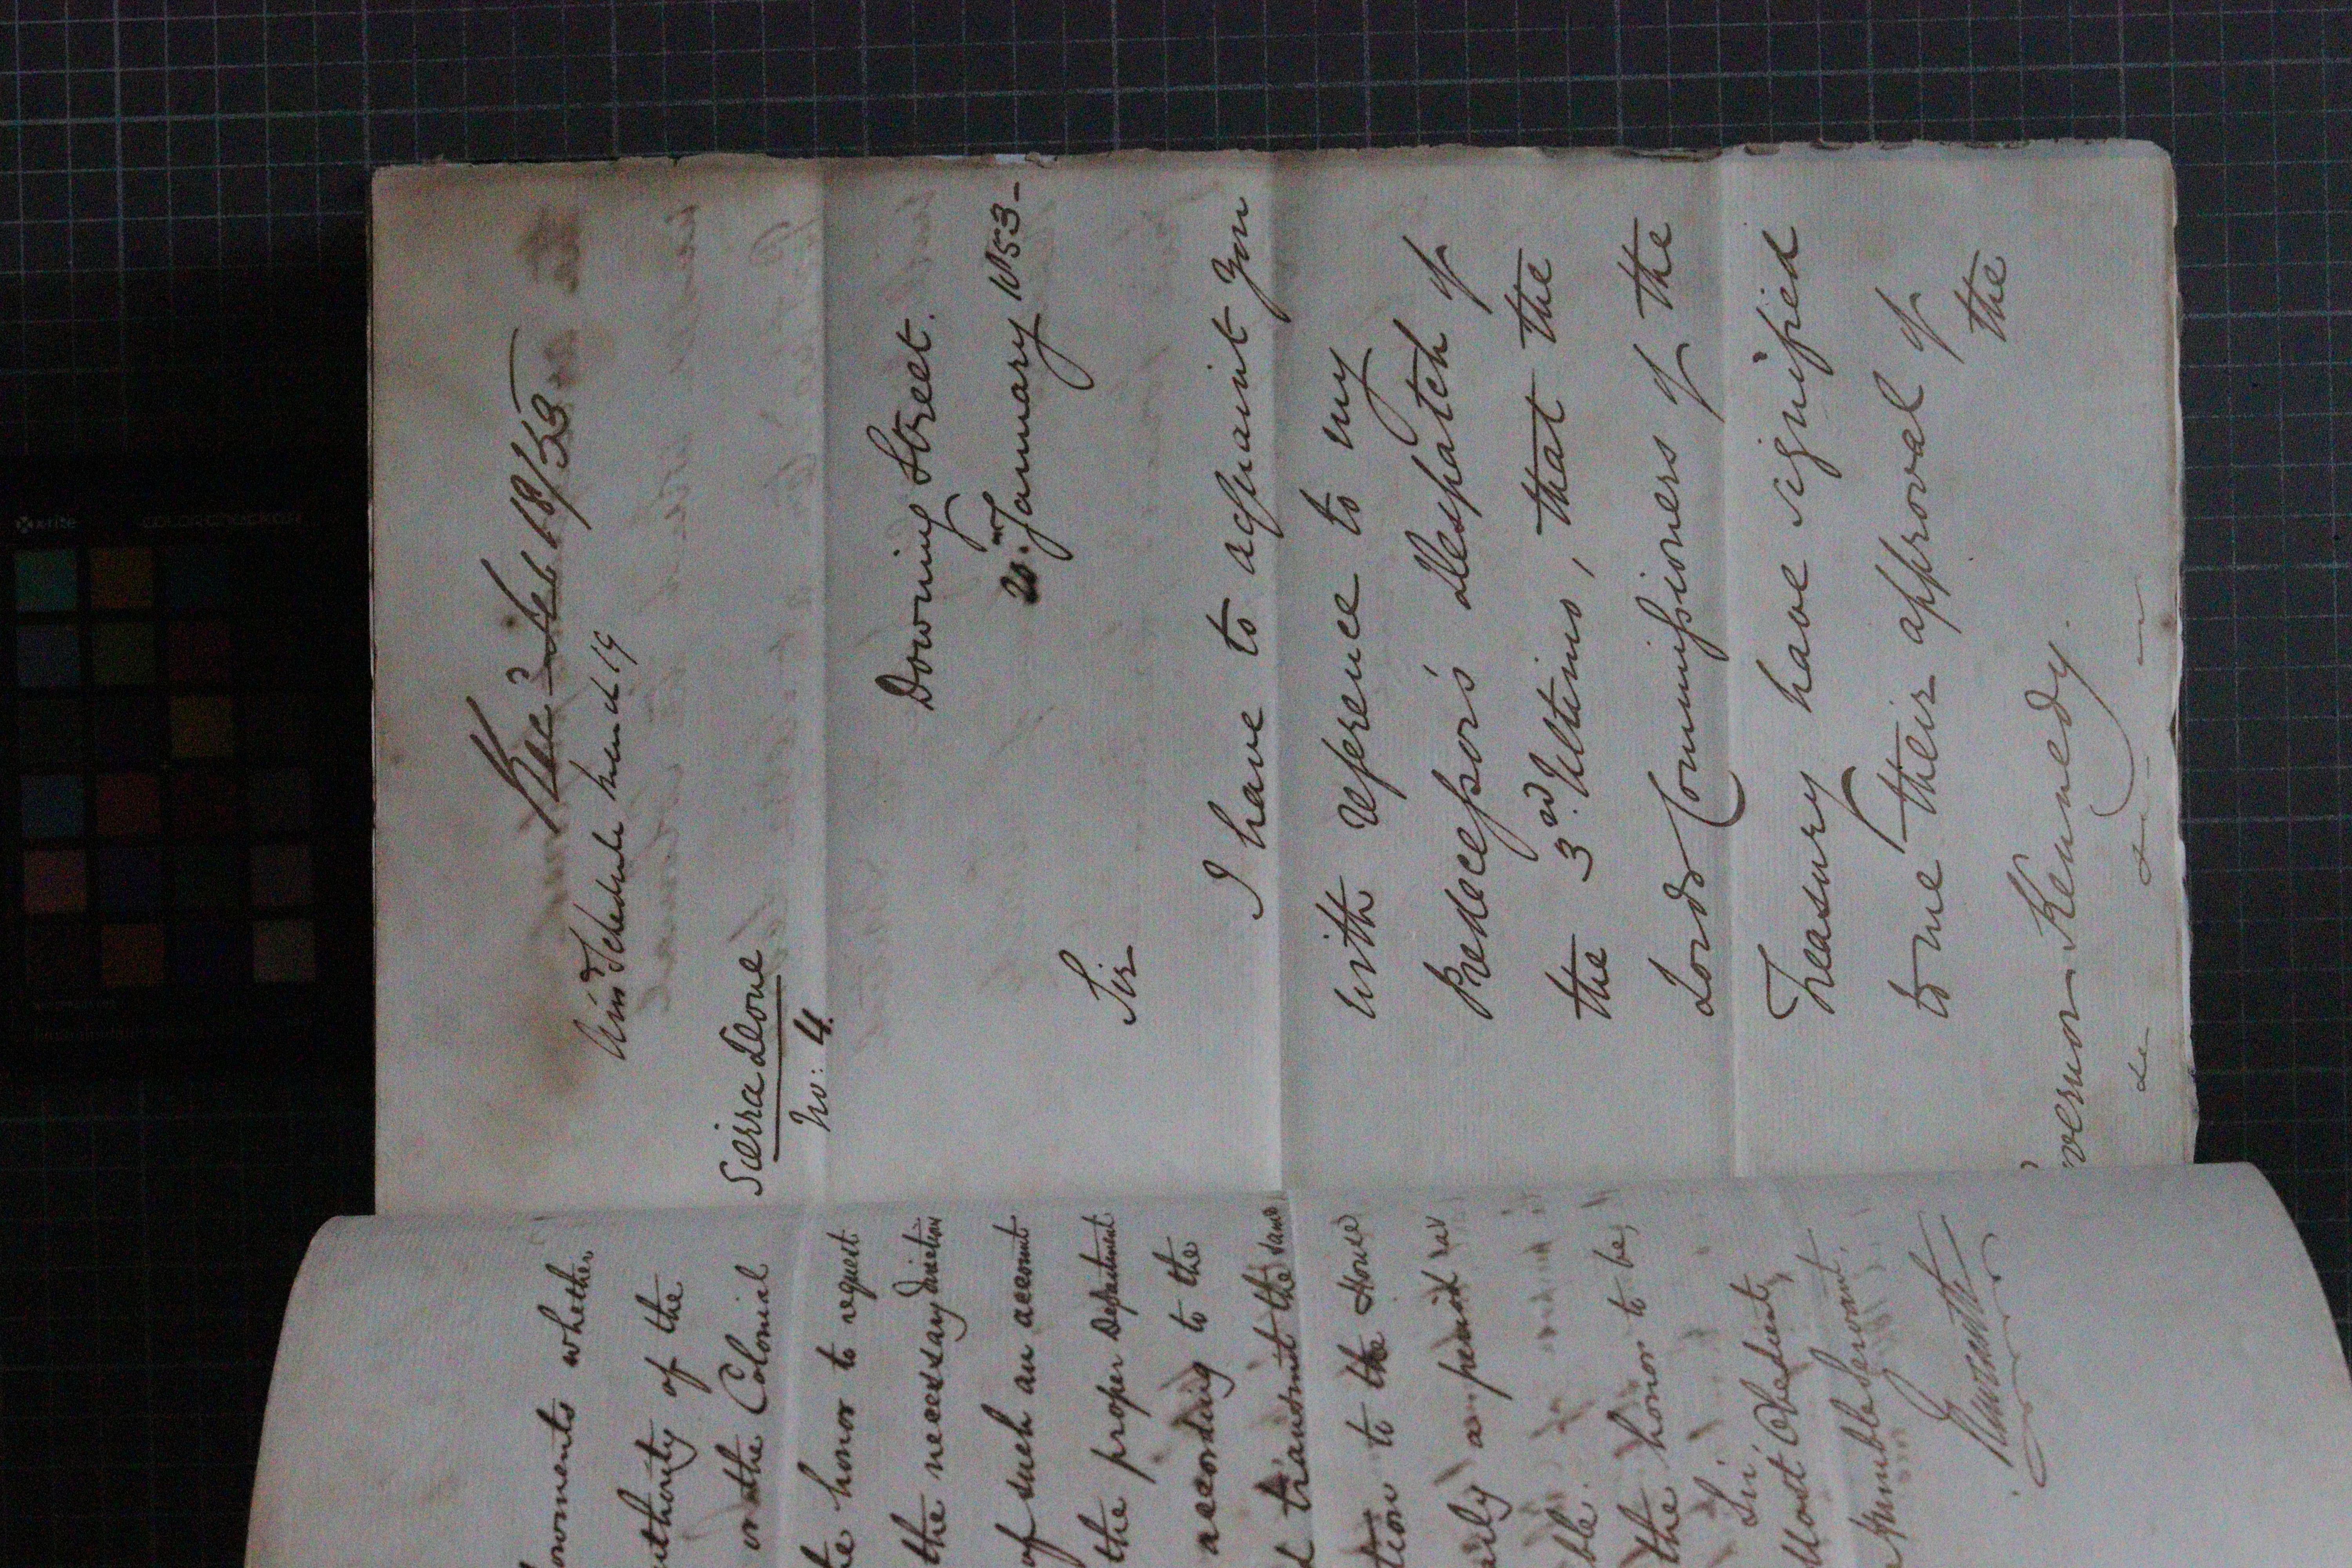 Rec.d Feb 18/53
Sierra Leone
No: 4.
Downing Street.
20. January 1853-
Sir
I have to acquaint you
with reference to my
Predecessor's Despatch of
the 3rd. Ultimo, that the
Lords Commissioners of the
Treasury have signified
to me their approval of
the
vernor Kennedy.
whether
uthority of the
or the Colonial
honor to request
the necessary direction
of such an account
the proper Department
according to the
transmit the same
to the House
as
the honor to be,
Sir,
Most Obedient
Humble Servant,
x-rite